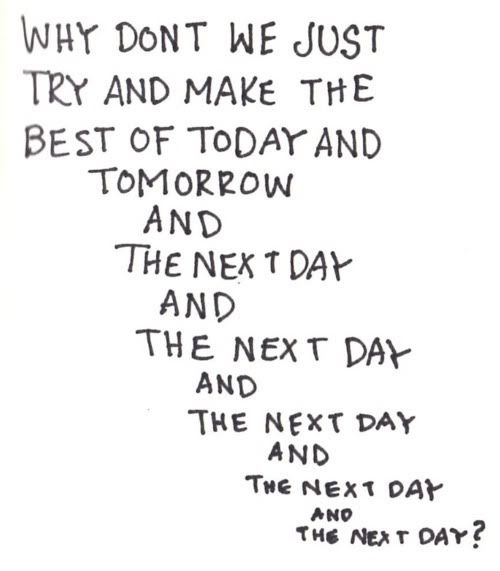 WHY DONT WE JUST
TRY AND MAKE THE
BEST OF TODAY AND
TOMORROW
AND
THE NEXT DAY
AND
THE NEXT DAY
AND
THE NEXT DAY
AND
THE NEXT DAY
AND
THE NEXT DAY?